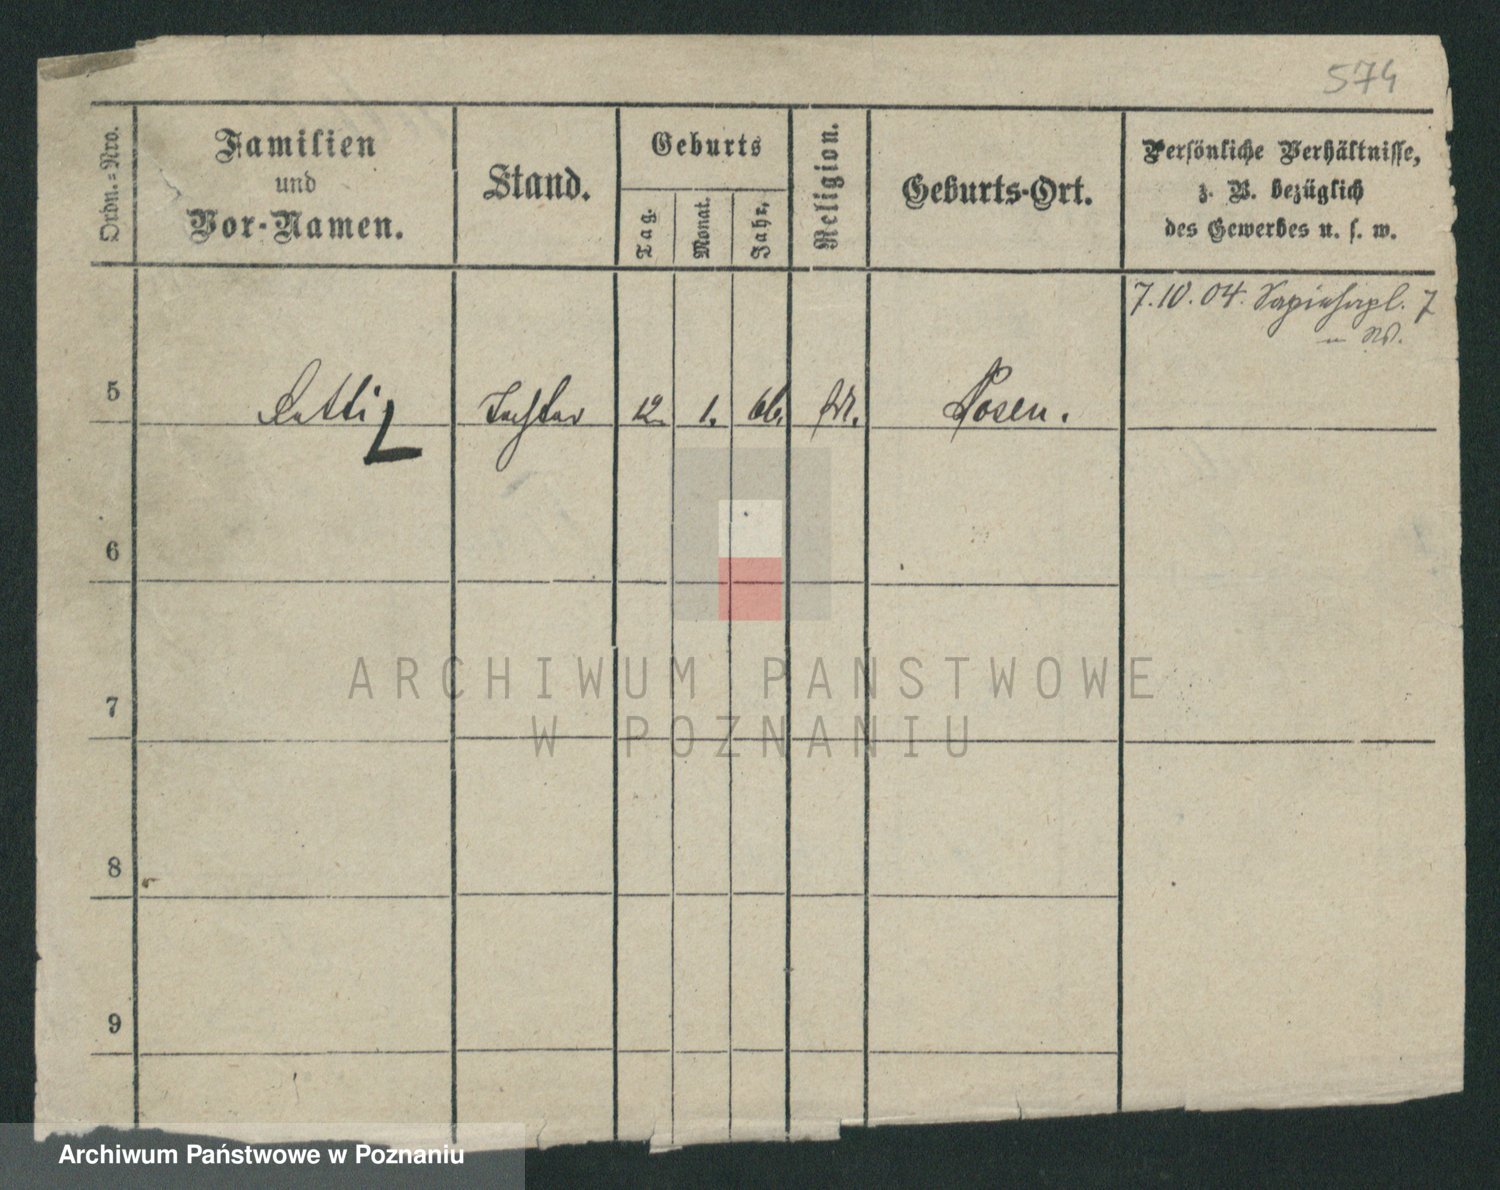 574
Ordn.=Nro.
Familien
und
Vor-Namen.
Stand.
Geburts
Tag.
Monat.
Jahr.
Religion.
Geburts-Ort.
Persönliche Verhältnisse,
z. B. bezüglich
des Gewerbes u. s. w.
7.10.04. Sapiehapl. 7
5 Tochter 12. 1. 66. Posen.
6
7
8
9
ARCHIWUM PAŃSTWOWE
W POZNANIU
Archiwum Państwowe w Poznaniu